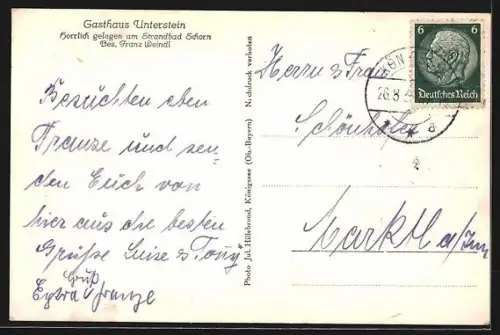 Gasthaus Unterstein
Herrlich gelegen am Strandbad Schorn
Bes. Franz Weindl
Besuchten eben
Franze und sen-
den Euch von
hier aus die besten
Grüße Luise & Tony
Gruß
Extra v Franze
Photo Jul. Hillebrand, Königssee (Ob.-Bayern) Nachdruck verboten
6 6
Deutsches Reich
KÖN
26.8.3
a
Herrn & Frau
Schönhofer
Marktl a/Inn